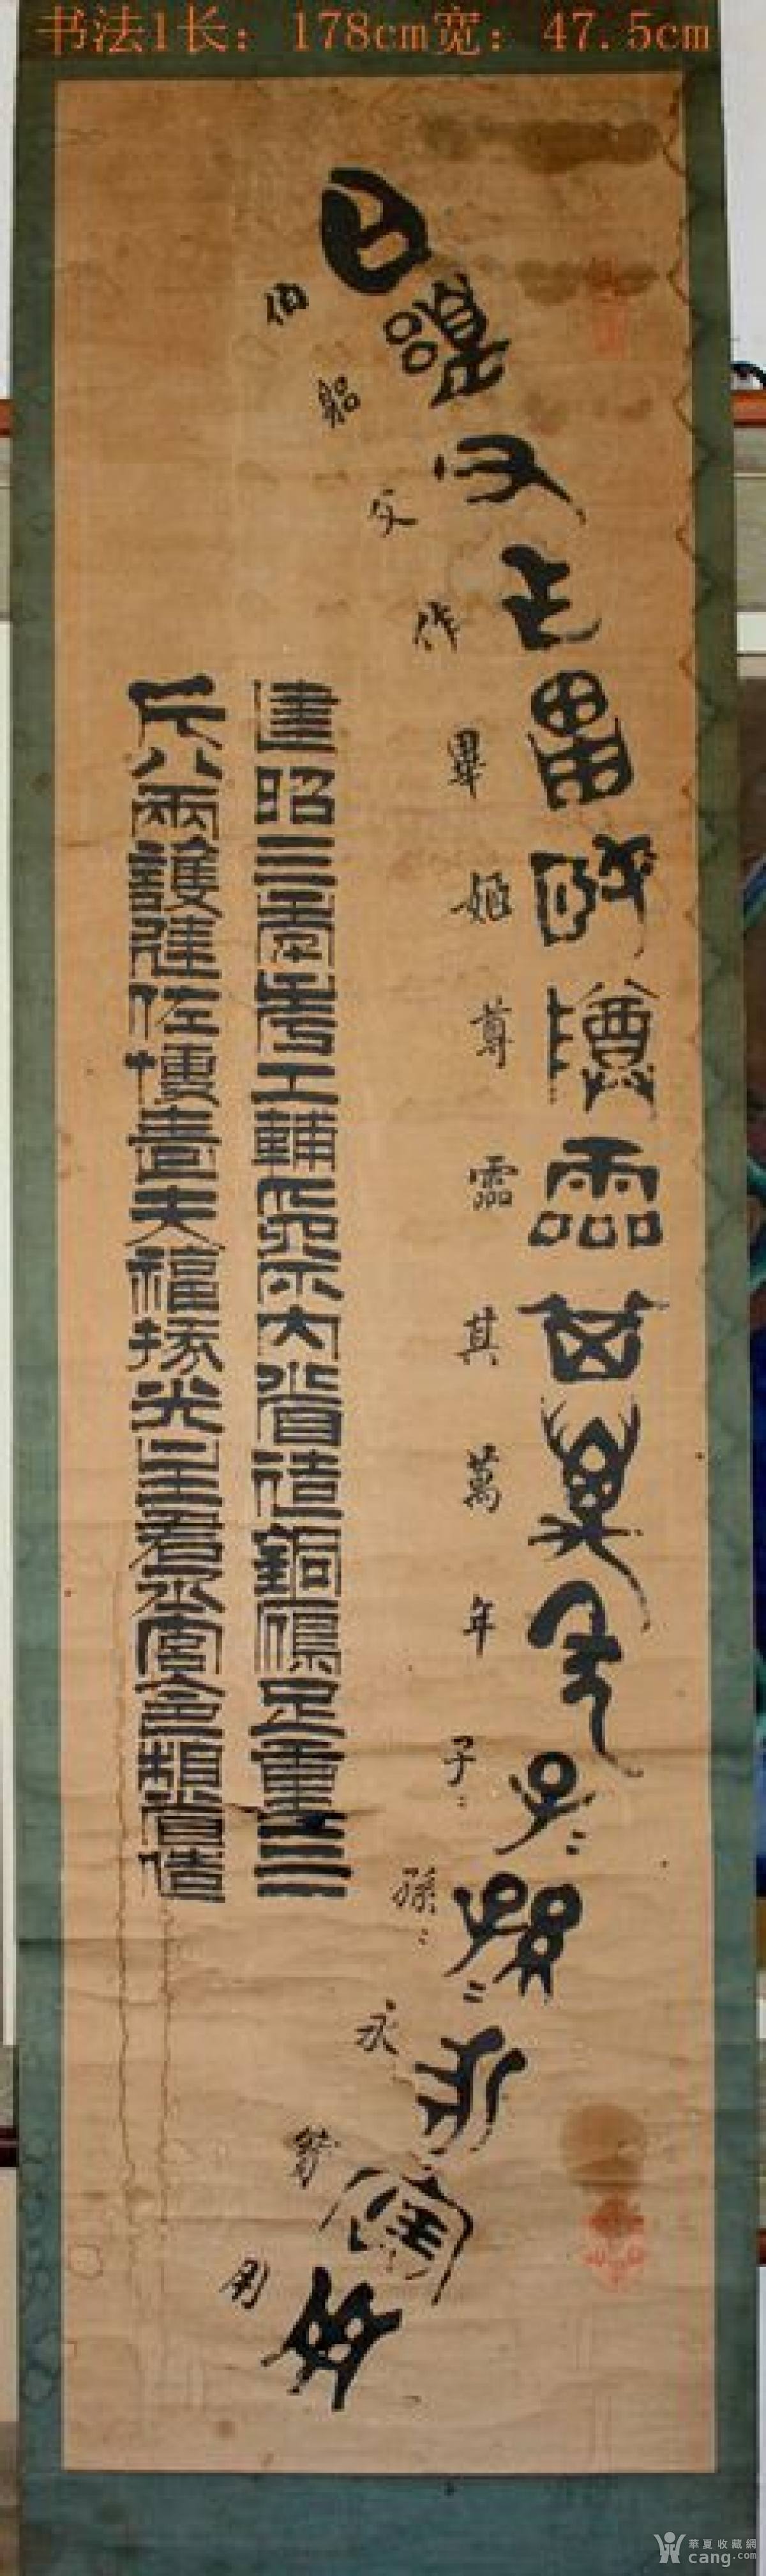 书法1长：178cm宽：47.5cm
伯父作畢姬尊其萬年子：孫：永寶用
建昭三年考工輔爲内者造銅鴈足重三
斤八兩護建佐博嗇夫福掾光主右丞宮令相省造
華夏收藏網
cang.com